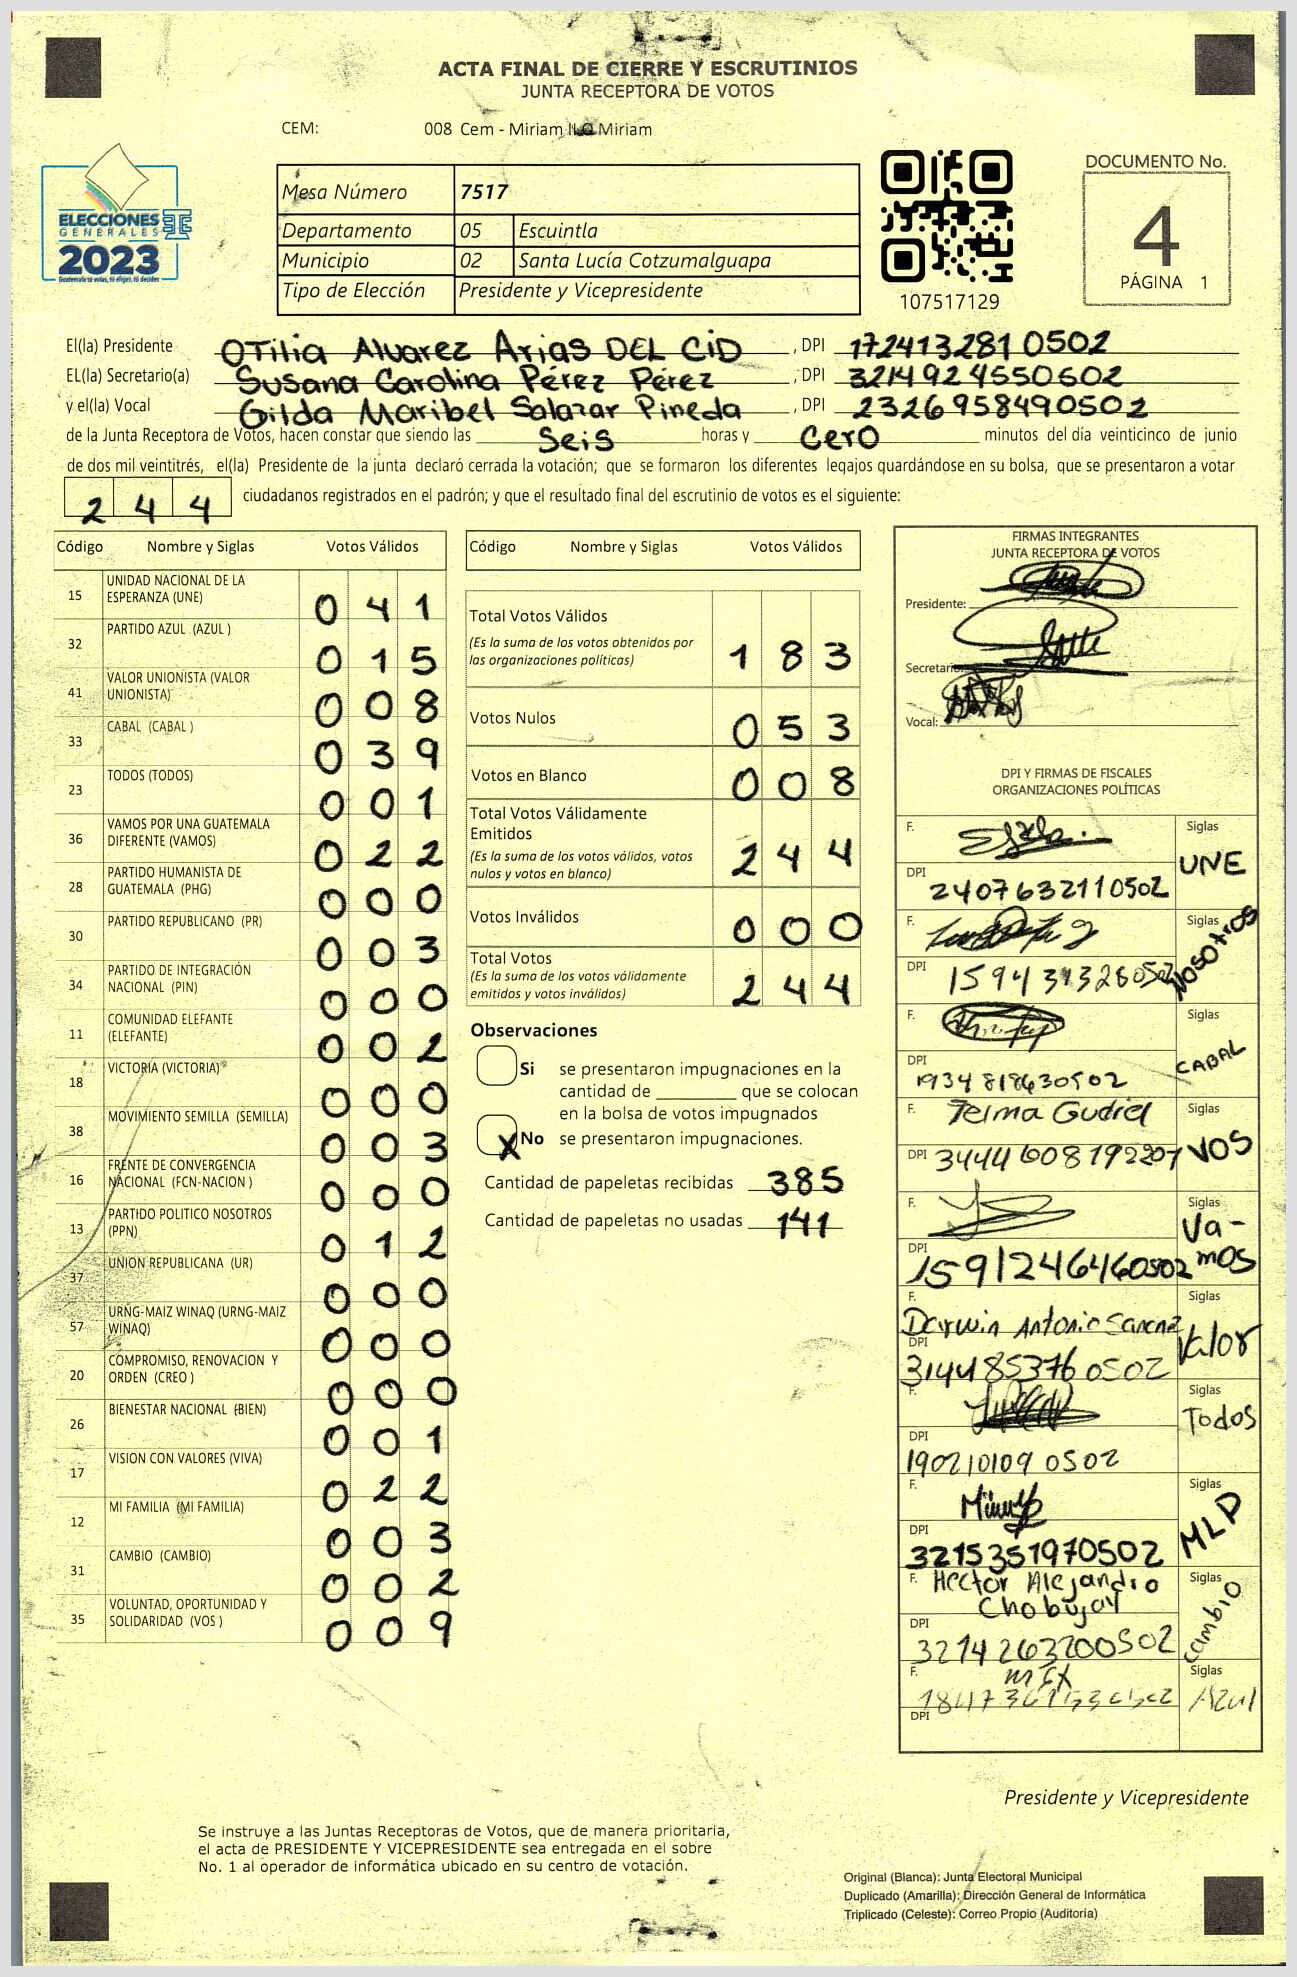 ACTA FINAL DE CIERRE Y ESCRUTINIOS
JUNTA RECEPTORA DE VOTOS
CEM: 008 Cem - Miriam Miriam
ELECCIONES
GENERALES
2023
Guatemala tú votas, tú eliges, tú decides
Mesa Número 7517
Departamento 05 Escuintla
Municipio 02 Santa Lucía Cotzumalguapa
Tipo de Elección Presidente y Vicepresidente
107517129
DOCUMENTO No.
4
PÁGINA 1
El(la) Presidente OTilia Alvarez Arias DEL CiD , DPI 172413281 0502
EL(la) Secretario(a) Susana Carolina Pérez Pérez , DPI 3214924550502
y el(la) Vocal Gilda Maribel Salazar Pineda , DPI 2326958490502
de la Junta Receptora de Votos, hacen constar que siendo las Seis horas y Cero minutos del día veinticinco de junio
de dos mil veintitrés, el(la) Presidente de la junta declaró cerrada la votación; que se formaron los diferentes legajos quardándose en su bolsa, que se presentaron a votar
2 4 4 ciudadanos registrados en el padrón; y que el resultado final del escrutinio de votos es el siguiente:
Código Nombre y Siglas Votos Válidos
15 UNIDAD NACIONAL DE LA
ESPERANZA (UNE) 0 4 1
32 PARTIDO AZUL (AZUL ) 0 1 5
41 VALOR UNIONISTA (VALOR
UNIONISTA) 0 0 8
33 CABAL (CABAL ) 0 3 9
23 TODOS (TODOS) 0 0 1
36 VAMOS POR UNA GUATEMALA
DIFERENTE (VAMOS) 0 2 2
28 PARTIDO HUMANISTA DE
GUATEMALA (PHG) 0 0 0
30 PARTIDO REPUBLICANO (PR) 0 0 3
34 PARTIDO DE INTEGRACIÓN
NACIONAL (PIN) 0 0 0
11 COMUNIDAD ELEFANTE
(ELEFANTE) 0 0 2
18 VICTORIA (VICTORIA) 0 0 0
38 MOVIMIENTO SEMILLA (SEMILLA) 0 0 3
16 FRENTE DE CONVERGENCIA
NACIONAL (FCN-NACION ) 0 0 0
13 PARTIDO POLITICO NOSOTROS
(PPN) 0 1 2
37 UNION REPUBLICANA (UR) 0 0 0
57 URNG-MAIZ WINAQ (URNG-MAIZ
WINAQ) 0 0 0
20 COMPROMISO, RENOVACION Y
ORDEN (CREO ) 0 0 0
26 BIENESTAR NACIONAL (BIEN) 0 0 1
17 VISION CON VALORES (VIVA) 0 2 2
12 MI FAMILIA (MI FAMILIA) 0 0 3
31 CAMBIO (CAMBIO) 0 0 2
35 VOLUNTAD, OPORTUNIDAD Y
SOLIDARIDAD (VOS ) 0 0 9
Código Nombre y Siglas Votos Válidos
Total Votos Válidos
(Es la suma de los votos obtenidos por
las organizaciones políticas) 1 8 3
Votos Nulos 0 5 3
Votos en Blanco 0 0 8
Total Votos Válidamente
Emitidos
(Es la suma de los votos válidos, votos
nulos y votos en blanco) 2 4 4
Votos Inválidos 0 0 0
Total Votos
(Es la suma de los votos válidamente
emitidos y votos inválidos) 2 4 4
Observaciones
Si se presentaron impugnaciones en la
cantidad de ________ que se colocan
en la bolsa de votos impugnados
X No se presentaron impugnaciones.
Cantidad de papeletas recibidas 385
Cantidad de papeletas no usadas 141
FIRMAS INTEGRANTES
JUNTA RECEPTORA DE VOTOS
Presidente:
Secretario:
Vocal:
DPI Y FIRMAS DE FISCALES
ORGANIZACIONES POLÍTICAS
F. Siglas
UNE
DPI 2407632110502
F. Siglas
NOSOTROS
DPI
F. Siglas
CABAL
DPI 1934818630502
F. Telma Gudiel Siglas
VOS
DPI 3444608192207
F. Siglas
Va-
mos
DPI 1591246460502
F. Darwin Antonio Siglas
Valor
DPI 3144853760502
F. Siglas
Todos
DPI 190210109 0502
F. Siglas
MLP
DPI 3215351970502
F. Hector Alejandro Siglas
Chobujay
Cambio
DPI 3214263200502
F. Siglas
Azul
DPI
Presidente y Vicepresidente
Se instruye a las Juntas Receptoras de Votos, que de manera prioritaria,
el acta de PRESIDENTE Y VICEPRESIDENTE sea entregada en el sobre
No. 1 al operador de informática ubicado en su centro de votación.
Original (Blanca): Junta Electoral Municipal
Duplicado (Amarilla): Dirección General de Informática
Triplicado (Celeste): Correo Propio (Auditoría)